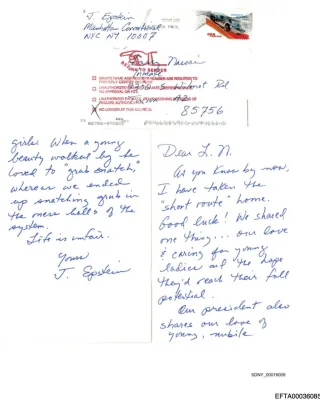 J. Epstein
Manhattan Correctional
NYC NY 10007
Larry Nassar
Inmate
9300 S. Wilmot Rd
Tucson AZ
85756
RETURN TO SENDER
NO LONGER AT THIS ADDRESS
Dear L. N.
As you know by now,
I have taken the
"short route" home.
Good luck! We shared
one thing... our love
& caring for young
ladies and the hope
they'd reach their full
potential.
Our president also
shares our love of
young, nubile
girls. When a young
beauty walked by he
loved to "grab snatch,"
whereas we ended
up snatching grub in
the mess halls of the
system.
Life is unfair.
Yours
J. Epstein
SDNY_00016089
EFTA00036085